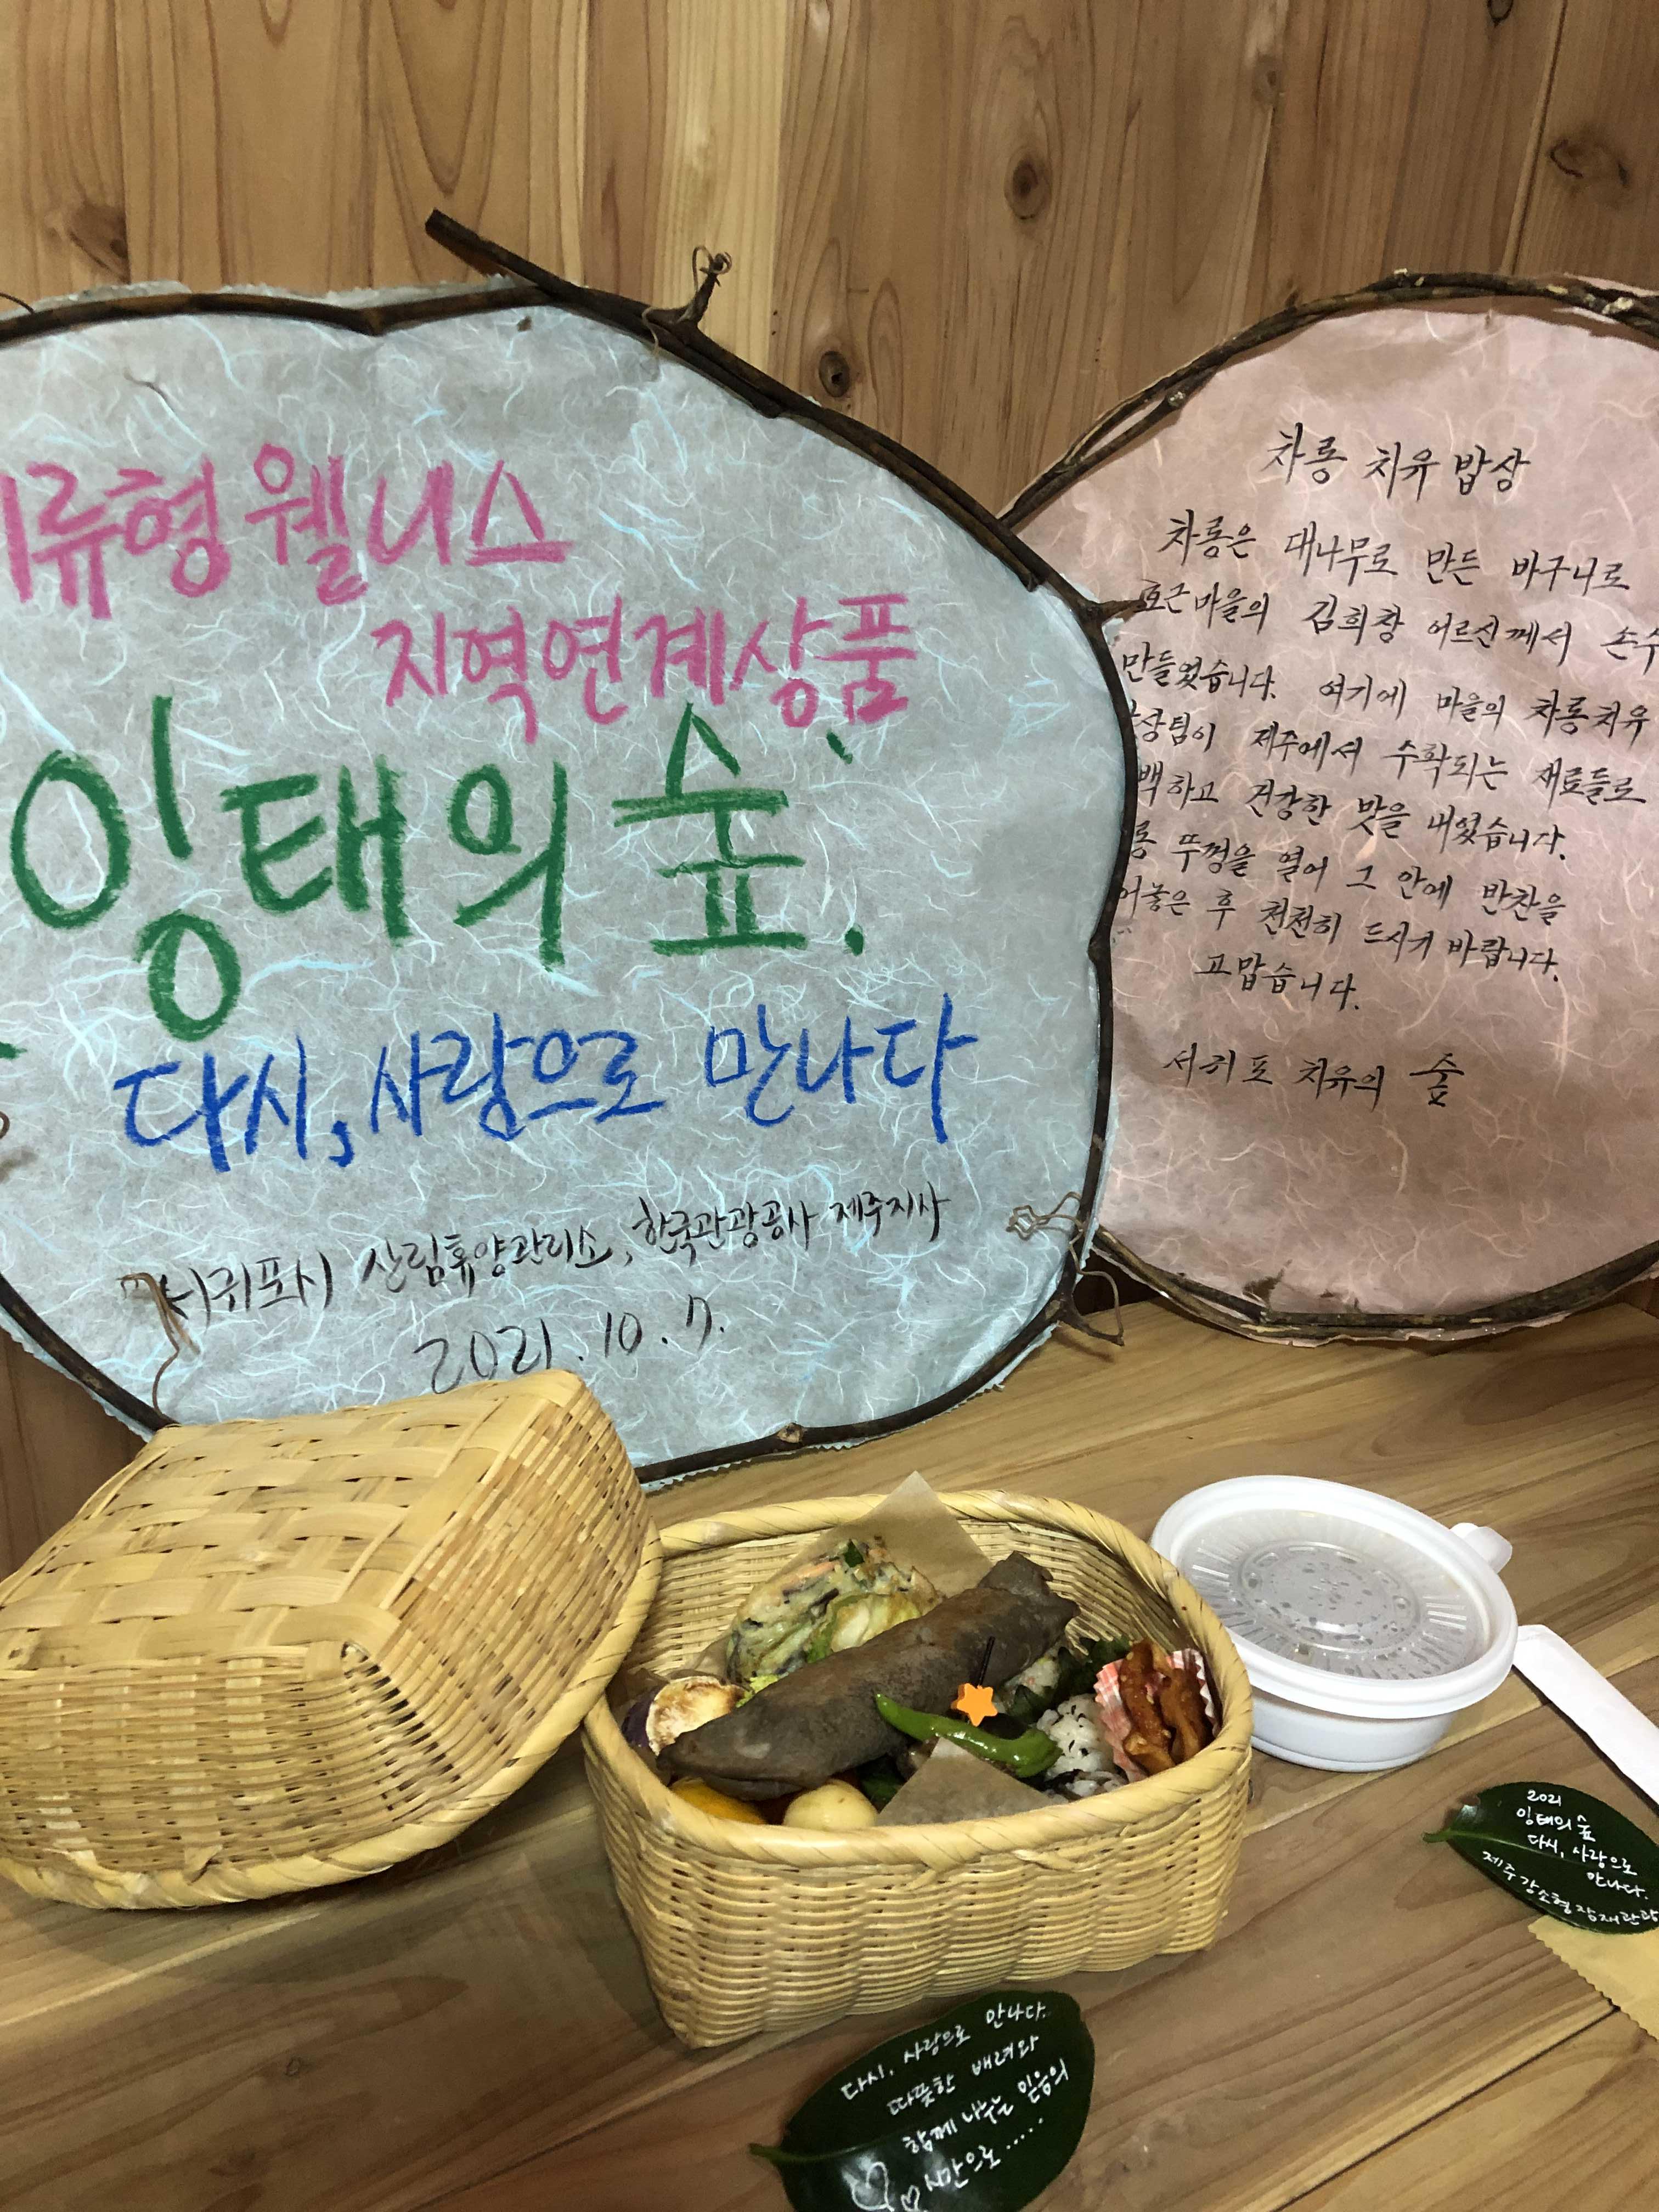 류형 웰니스
지역연계상품
잉태의 숲
다시, 사랑으로 만나다
서귀포시 산림휴양관리소, 한국관광공사 제주지사
2021. 10. 7.
차롱 치유 밥상
차롱은 대나무로 만든 바구니로
호근마을의 김희창 어르신께서 손수
만들었습니다. 여기에 마을의 차롱치유
상팀이 제주에서 수확되는 재료들로
백하고 건강한 맛을 내었습니다.
롱 뚜껑을 열어 그 안에 반찬을
어놓은 후 천천히 드시기 바랍니다.
고맙습니다.
서귀포 치유의 숲
2021
잉태의 숲
다시, 사랑으로
만나다.
제주 강소형 잠재관광
다시, 사랑으로 만나다.
따뜻한 배려와
함께 나누는 믿음의
시간으로....